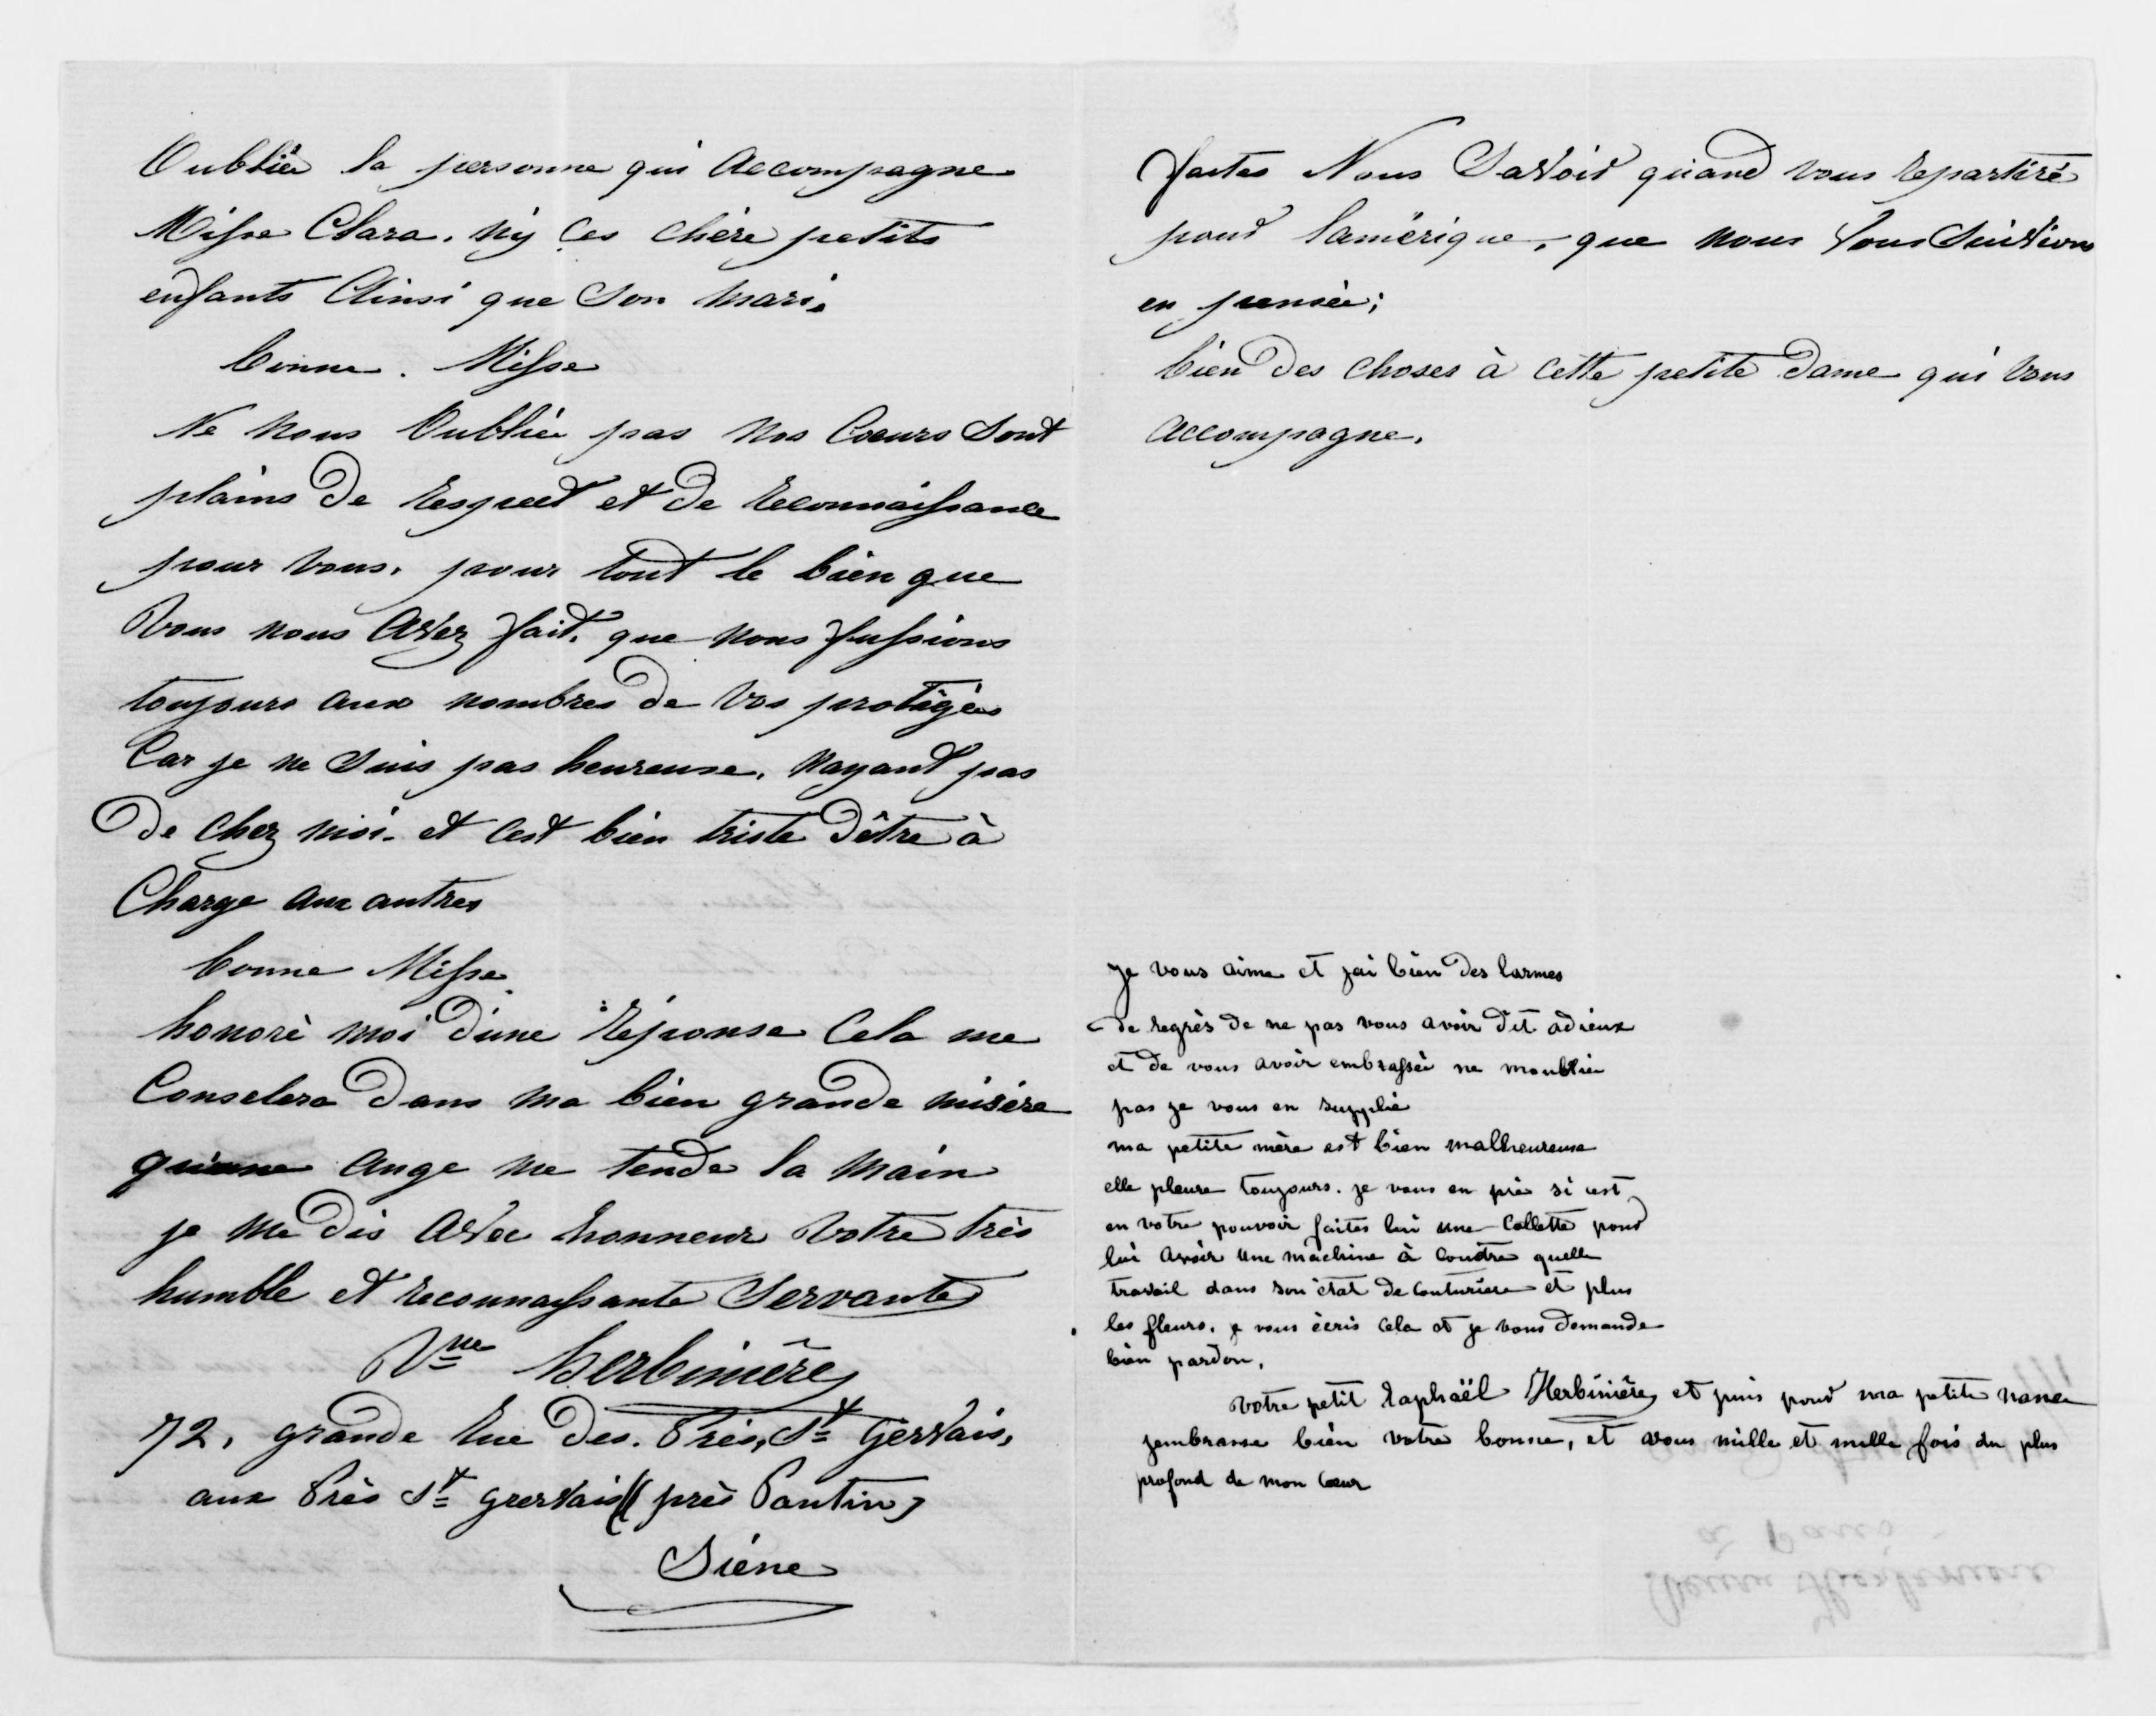 Oubliér la personne qui Accompagne
Misse Clara. ny ces chère petits
enfants Ainsi que Son Mari.
bonne. Misse
Ne Nous Oublièe pas Nos Coeurs Sont
plains De Respect et De Reconnaissance
pour Vous. pour tout le bien que
Vous nous Avez fait. que Nous fussions
toujours aux nombres De Vos protégées
Car je ne Suis pas heureuse. Nayant pas
De Chez Moi. et cest bien triste D'être à
Charge aux autres
bonne Misse
honorè moi D'une Réponse Cela me
Conselera Dans Ma bien grande misère
qu'une Ange me tende la Main
je Me Dis Avec honneur Votre très
humble et reconnaissante Servante
Vve Herbinière
72, grande Rue Des. Près, St Gervais,
aux Près St grervais (près Pantin)
Siéne
faites Nous Savoir quand vous Repartiré
pour lamèrique, que nous Vous Suivions
en pensée;
bien Des Choses à Cette petite Dame qui Vous
Accompagne.
je vous aime et jai bien Des larmes
De regrès De ne pas vous avoir Dit adieux
et De vous avoir embrassée ne moublièe
pas je vous en supplie
ma petite mère est bien malheureuse
elle pleure toujours. je vous en prie si cest
en votre pouvoir faites lui une Collette pour
lui Avoir Une machine à Coudre quelle
travail dans son état De Couturière et plus
les fleurs. je vous écris Cela et je vous Demande
bien pardon,
Votre petit Raphaël Herbinière et puis pour ma petite
jembrasse bien votre bonne, et vous mille et mille fois du plus
profond de mon Cœur
Veuve Herbiniere
à Paris